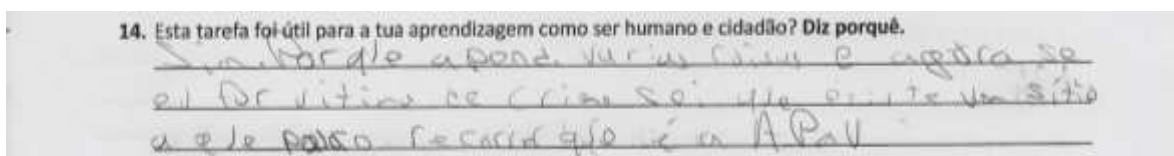 14. Esta tarefa foi útil para a tua aprendizagem como ser humano e cidadão? Diz porquê.
Sim. Porqle apond. varias coisas e agora se
el for vitima de crime sei qle existe um sítio
a qle posso recorrer qle é a APaV